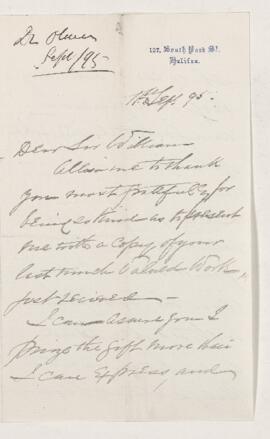 Dr Oliver
Sept/95
127, South Park St.
Halifax.
1st Sept 95.
Dear Sir William
Allow me to thank
you most gratefully for
being so kind as to present
me with a copy of your
last much valued work,
just received —
I can assure you I
prize the gift more than
I can express, and